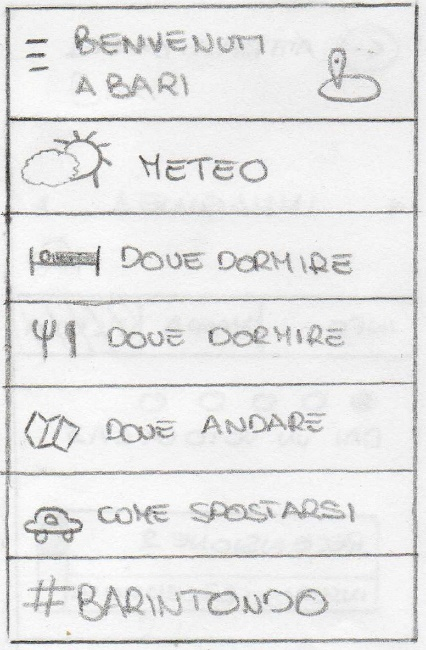 BENVENUTI
A BARI
METEO
DOVE DORMIRE
DOVE DORMIRE
DOVE ANDARE
COME SPOSTARSI
#BARINTONDO